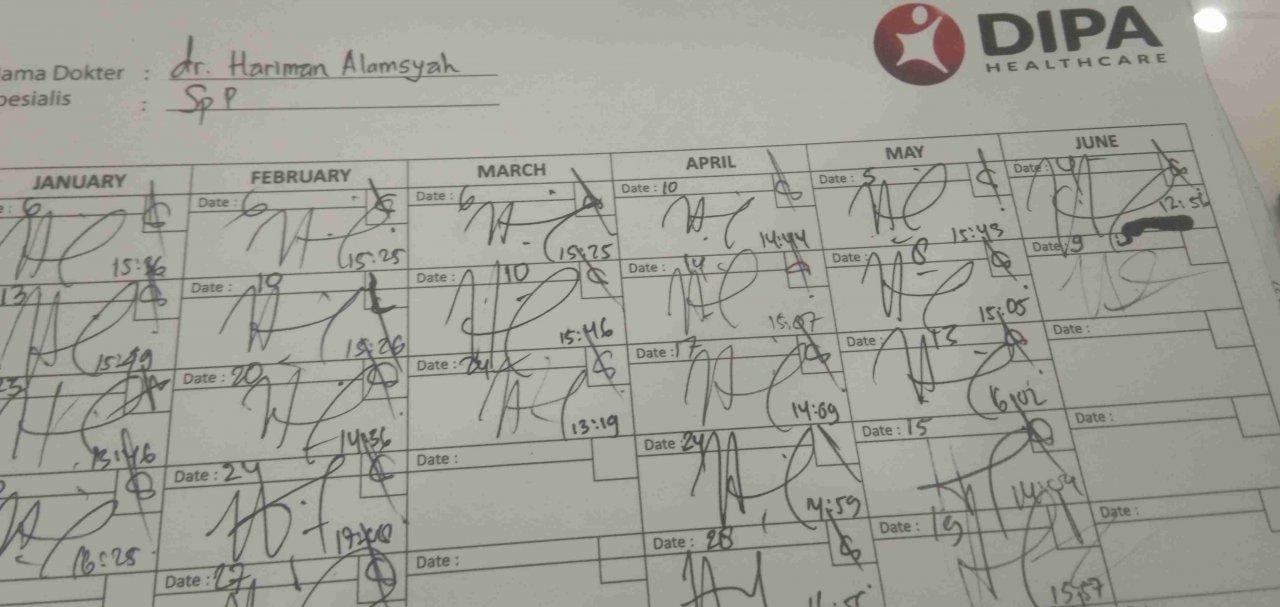 DIPA
HEALTHCARE
ama Dokter : dr. Hariman Alamsyah
pesialis : Sp P
JANUARY FEBRUARY MARCH APRIL MAY JUNE
: 6 Date : 6 Date : 6 Date : 10 Date : 5 Date :
15:25 15:25 14:44 15:43 12:56
13 Date : 19 Date : 10 Date : 14 Date : 8 Date : 9
15:26 15:46 15:07 15:05
23 Date : 20 Date : 24 Date : 17 Date : 13 Date :
13:46 14:36 13:19 14:09 16:02
Date : 24 Date : Date : 24 Date : 15 Date :
16:25 14:59
Date : 27 Date : Date : 28 Date : 19 Date :
15:57